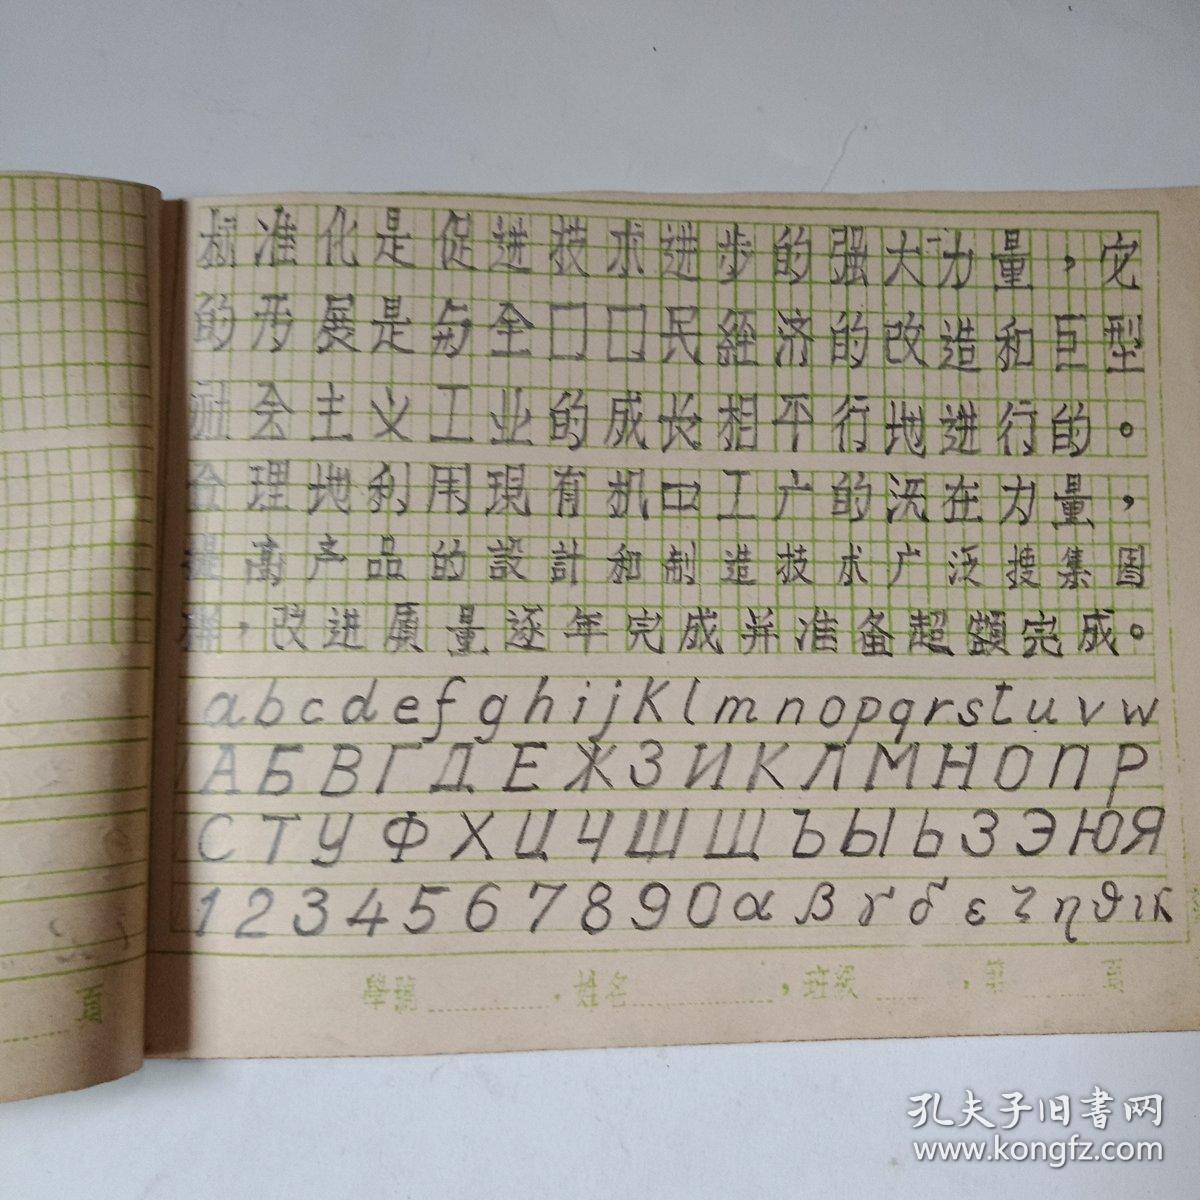 标准化是促进技术进步的强大力量，它
的形展是与全口口民經济的改造和巨型
社会主义工业的成长相平行地進行的。
合理地利用現有机中工产的洗在力量，
提高产品的設計和制造技术广泛搜集国
群，改进质量逐年完成并准备超額完成。
a b c d e f g h i j K l m n o p q r s t u v w
А Б В Г Д Е Ж З И К Л М Н О П Р
С Т У Ф Х Ц Ч Ш Щ Ъ Ы Ь З Э Ю Я
1 2 3 4 5 6 7 8 9 0 α β γ δ ε ζ η θ ι κ
學號 ，姓名 ，班級 ，第 頁
頁
孔夫子旧书网
www.kongfz.com